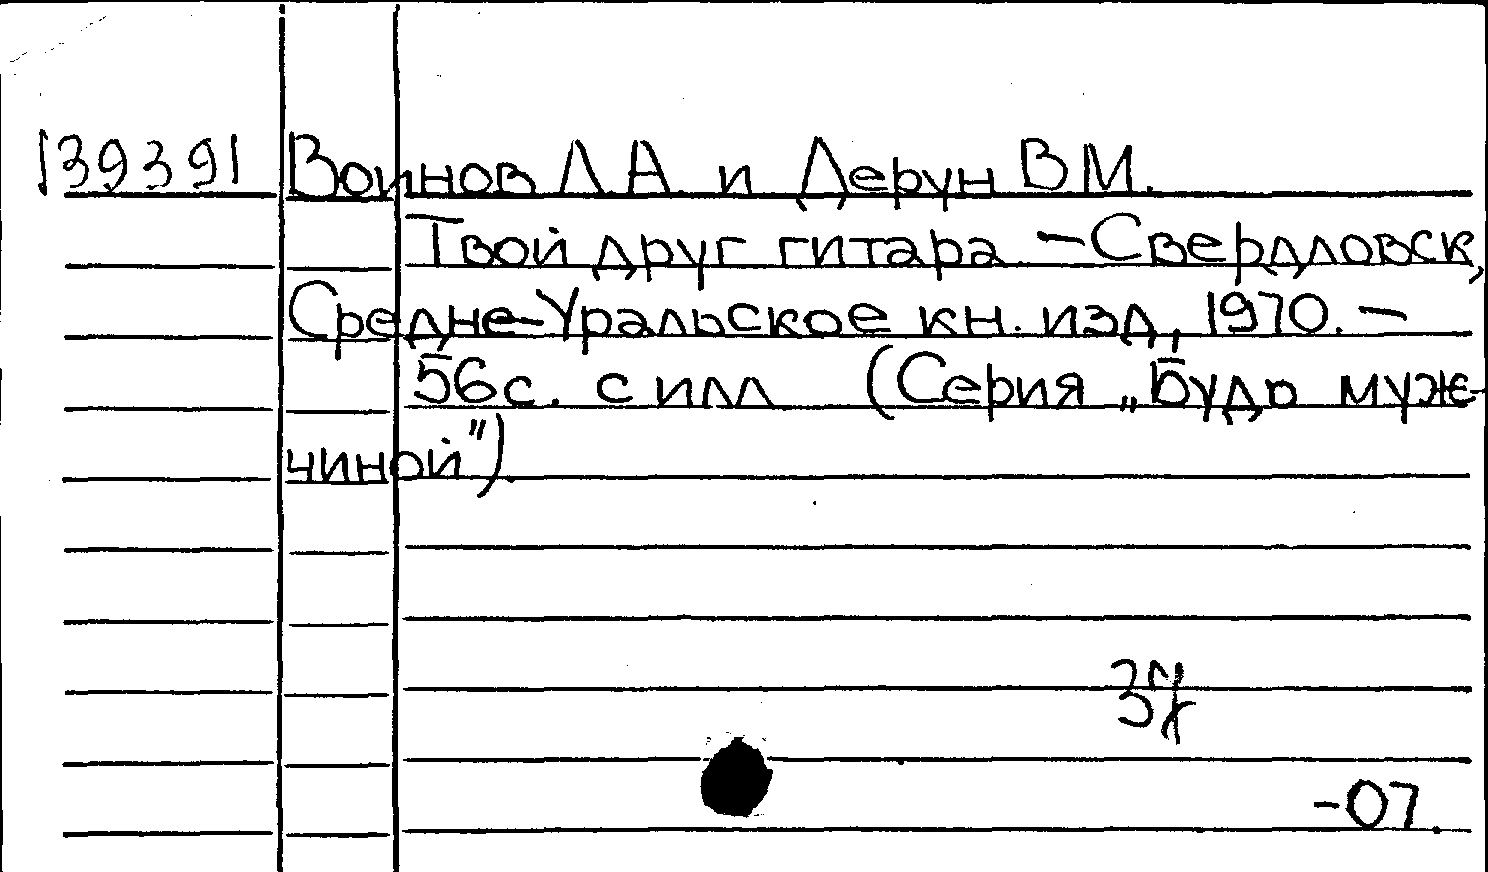 139391 Воинов Л.А. и Дерун В.М.
Твой друг гитара. — Свердловск,
Средне-Уральское кн. изд, 1970. —
56 с. с илл (Серия „Будь муж-
чиной").
-07.